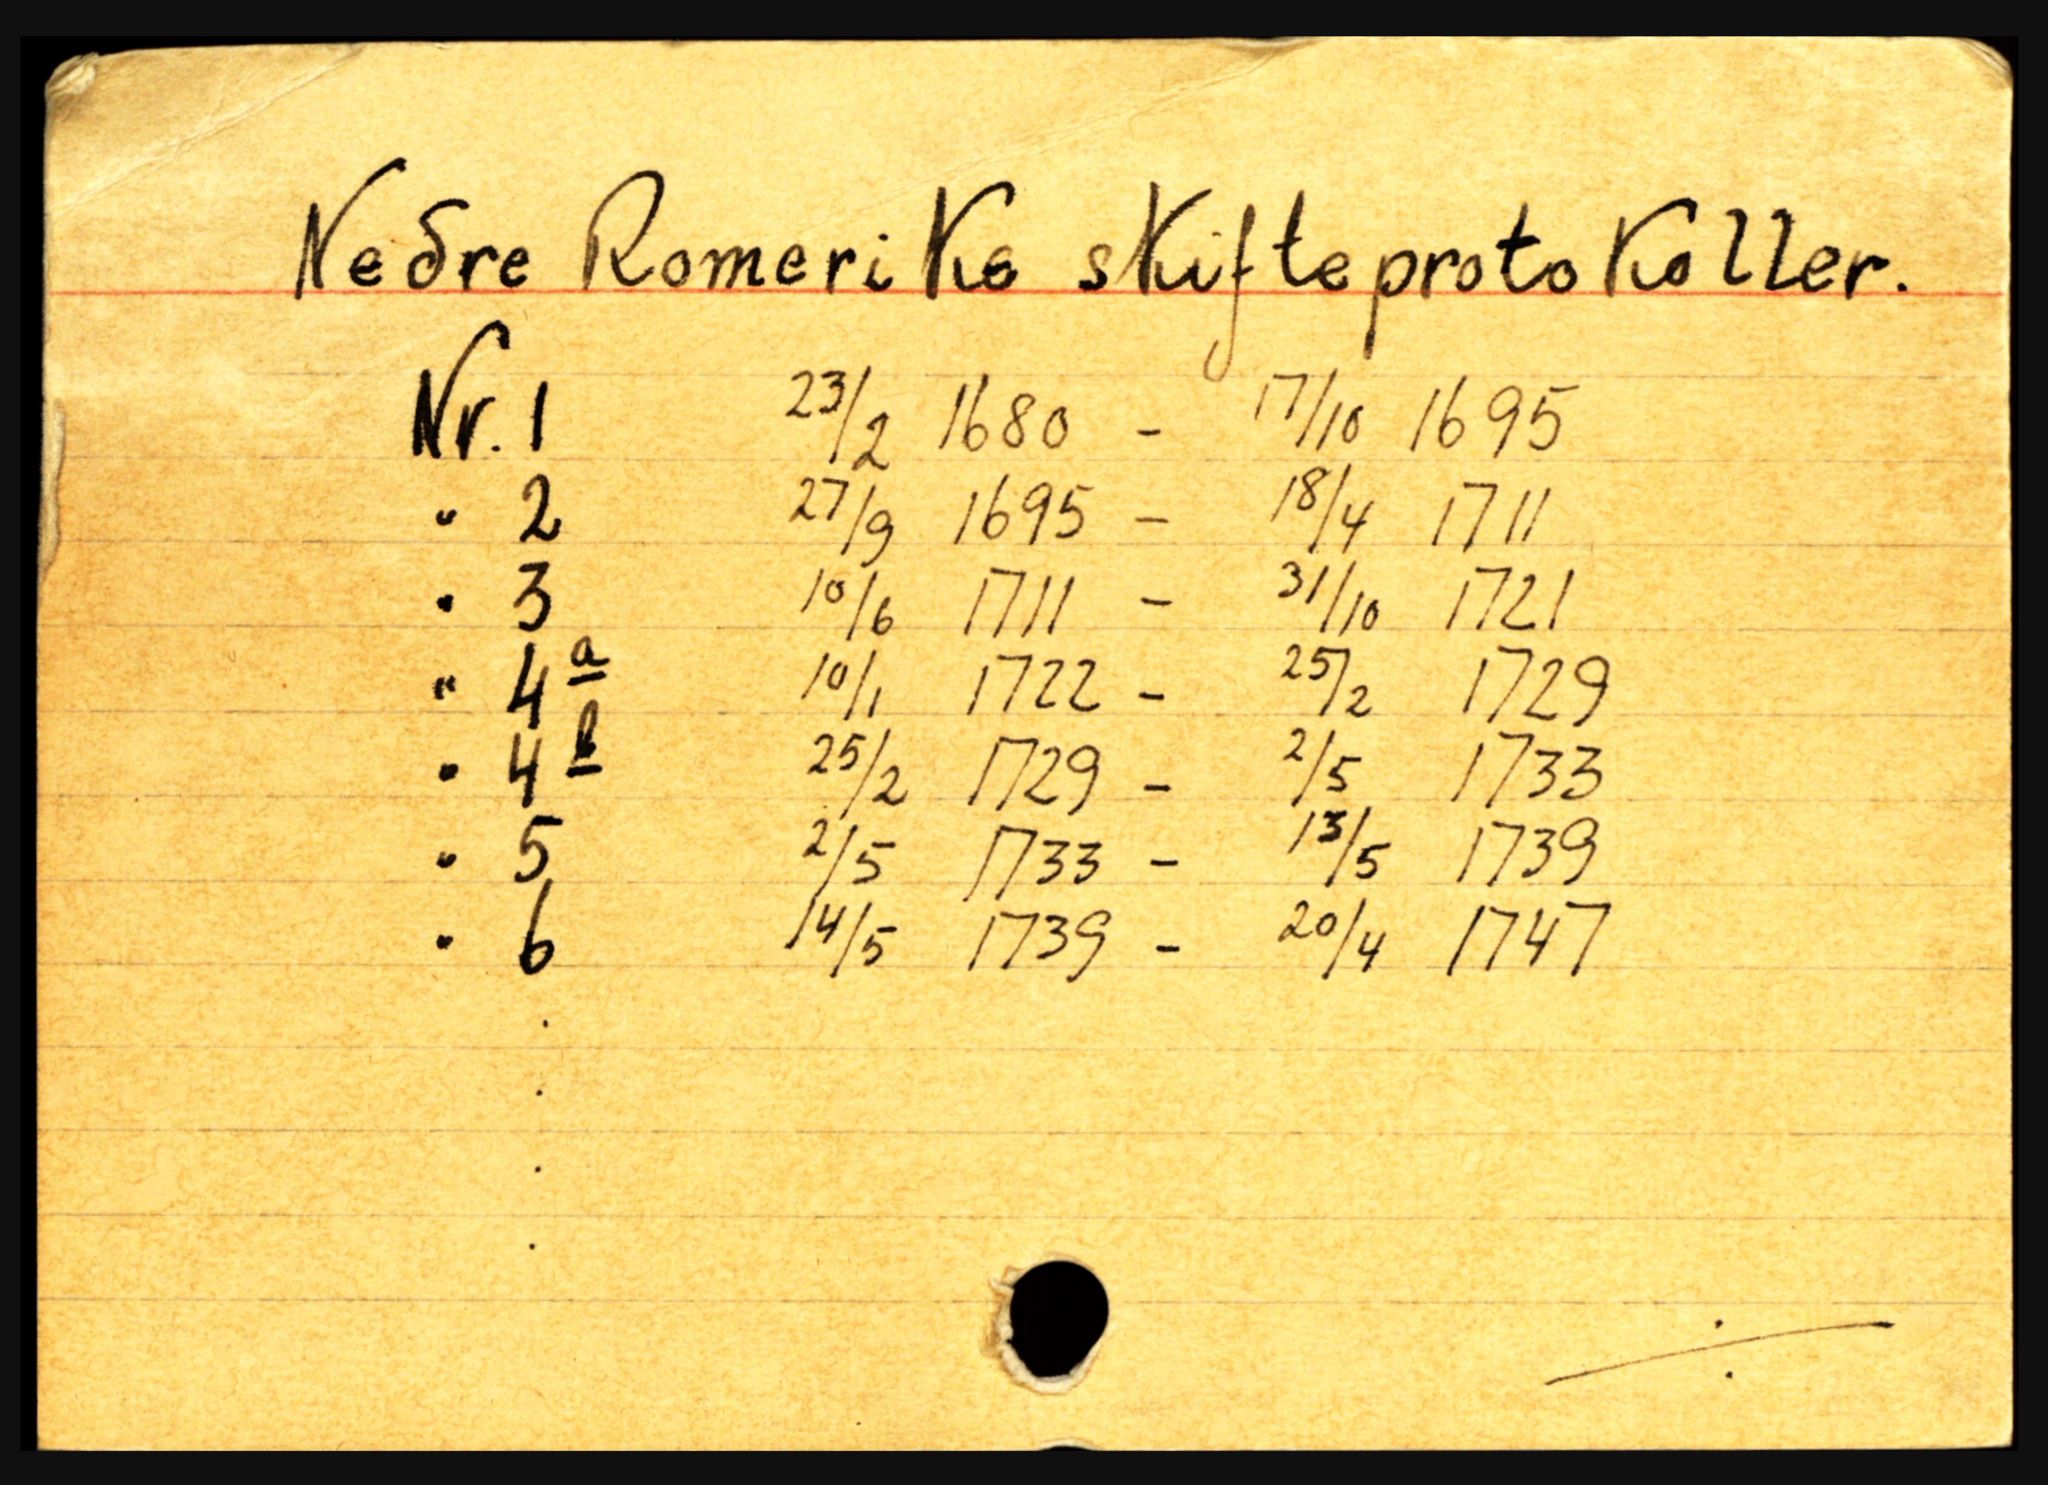 Nedre Romerike skifteprotokoller.
Nr. 1 23/2 1680 - 17/10 1695
" 2 27/9 1695 - 18/4 1711
" 3 10/6 1711 - 31/10 1721
" 4a 10/1 1722 - 25/2 1729
" 4b 25/2 1729 - 2/5 1733
" 5 2/5 1733 - 13/5 1739
" 6 14/5 1739 - 20/4 1747
.
.
.
.